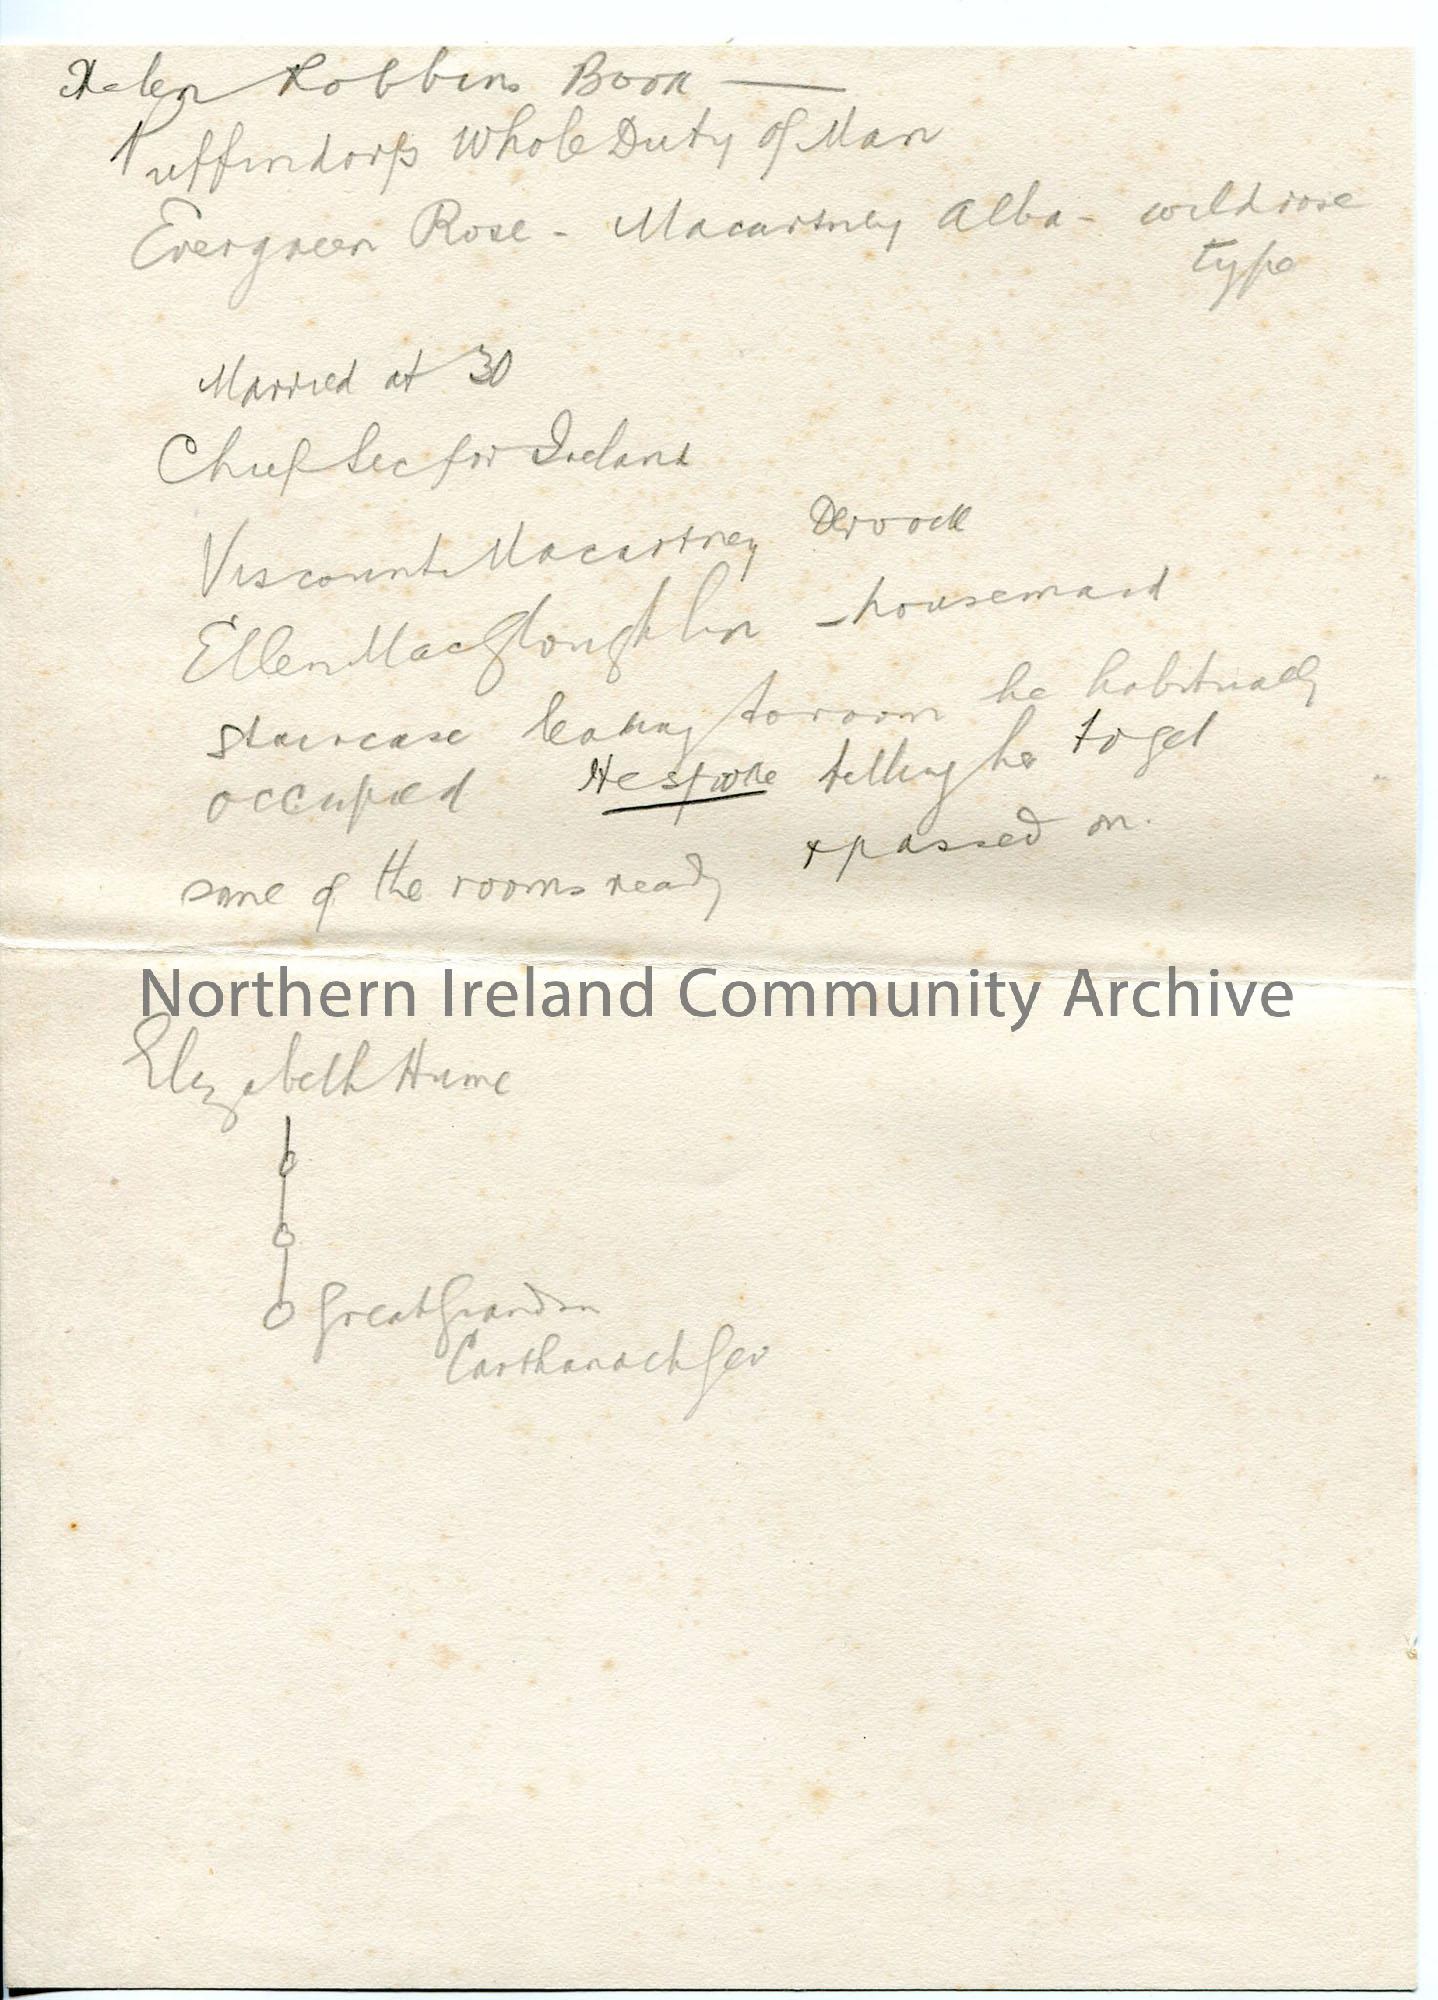 Helen Robbins Book —
Puffindorfs Whole Duty of Man
Evergreen Rose - Macartney Alba - wild rose
type
Married at 30
Chief Sec for Ireland
Viscount Macartney Dervock
Ellen MacGloughlin - housemaid
staircase leading to room he habitually
occupied He spoke telling her to get
some of the rooms ready + passed on.
Northern Ireland Community Archive
Elizabeth Hume
Great Grandson